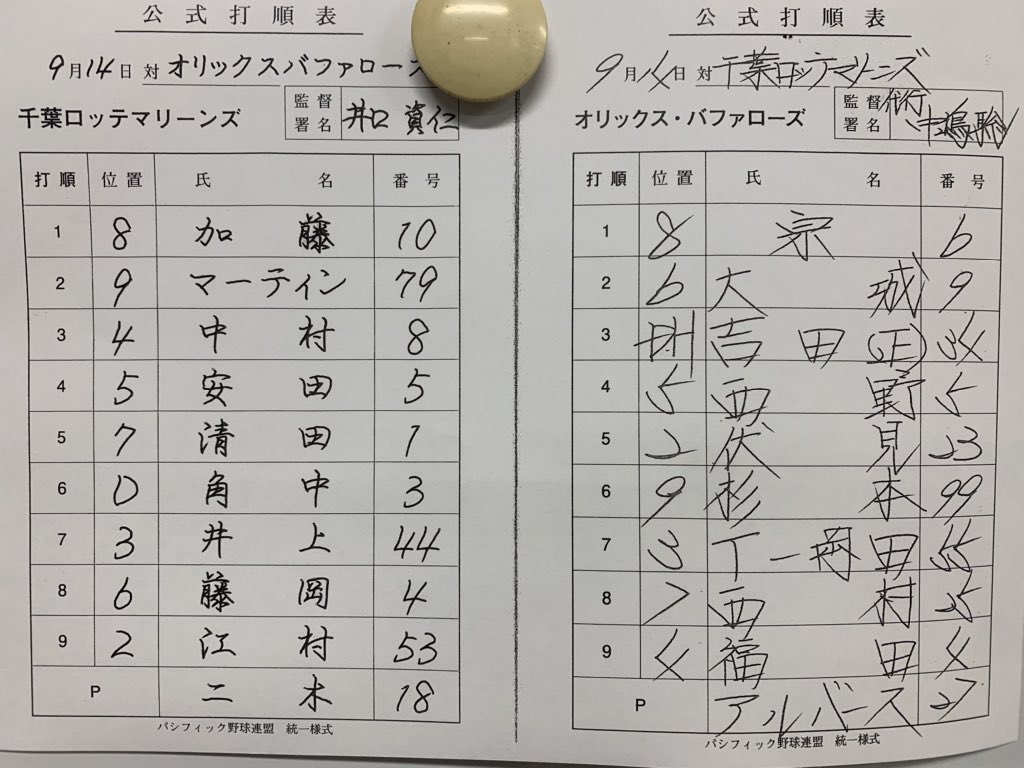 公式打順表
9月14日 対 オリックスバファローズ
千葉ロッテマリーンズ 監督署名 井口 資仁
打順 位置 氏名 番号
1 8 加藤 10
2 9 マーティン 79
3 4 中村 8
4 5 安田 5
5 7 清田 1
6 D 角中 3
7 3 井上 44
8 6 藤岡 4
9 2 江村 53
P 二木 18
パシフィック野球連盟 統一様式
公式打順表
9月14日 対 千葉ロッテマリーンズ
オリックス・バファローズ 監督署名 代行 中嶋聡
打順 位置 氏名 番号
1 8 宗 6
2 6 大城 9
3 DH 吉田(正) 34
4 5 西野 5
5 2 伏見 23
6 9 杉本 99
7 3 T-岡田 55
8 7 西村 25
9 4 福田 4
P アルバース 27
パシフィック野球連盟 統一様式